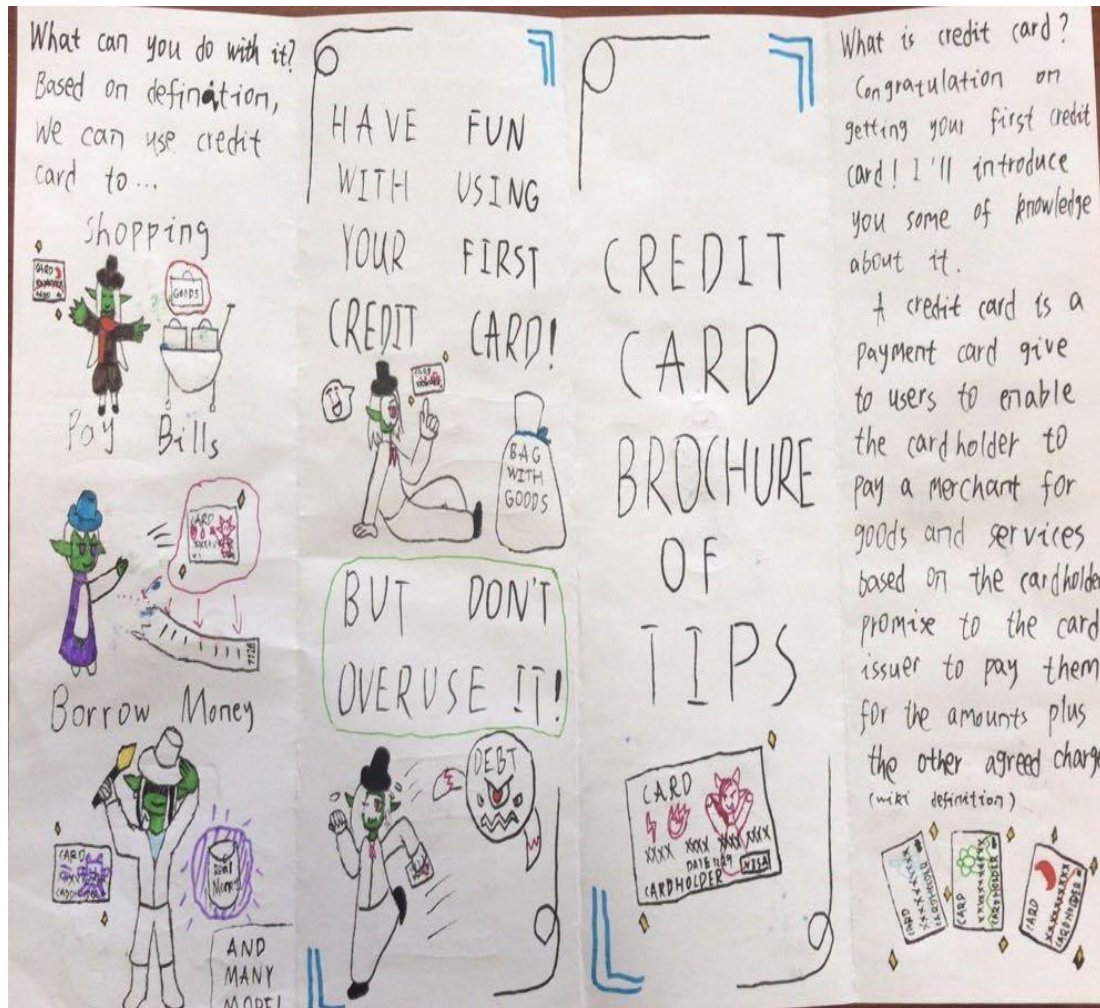 What can you do with it?
Based on defination,
We can use credit
card to...
Shopping
CARD
GOODS
Pay Bills
CARD
Borrow Money
CARD
AND
MANY
MORE!
HAVE FUN
WITH USING
YOUR FIRST
CREDIT CARD!
CARD
BAG
WITH
GOODS
BUT DON'T
OVERUSE IT!
DEBT
CREDIT
CARD
BROCHURE
OF
TIPS
CARD
XXXX XXXX XXXX XXXX
CARDHOLDER
VISA
What is credit card?
Congratulation on
getting your first credit
card! I'll introduce
you some of knowledge
about it.
A credit card is a
payment card give
to users to enable
the cardholder to
pay a merchant for
goods and services
based on the cardholder
promise to the card
issuer to pay them
for the amounts plus
the other agreed charge
(wiki definition)
CARD
XXXXXXXXXX
CARDHOLDER
CARD
XXXXXXXXXX
CARDHOLDER
CARD
XXXXXXXXXX
CARDHOLDER